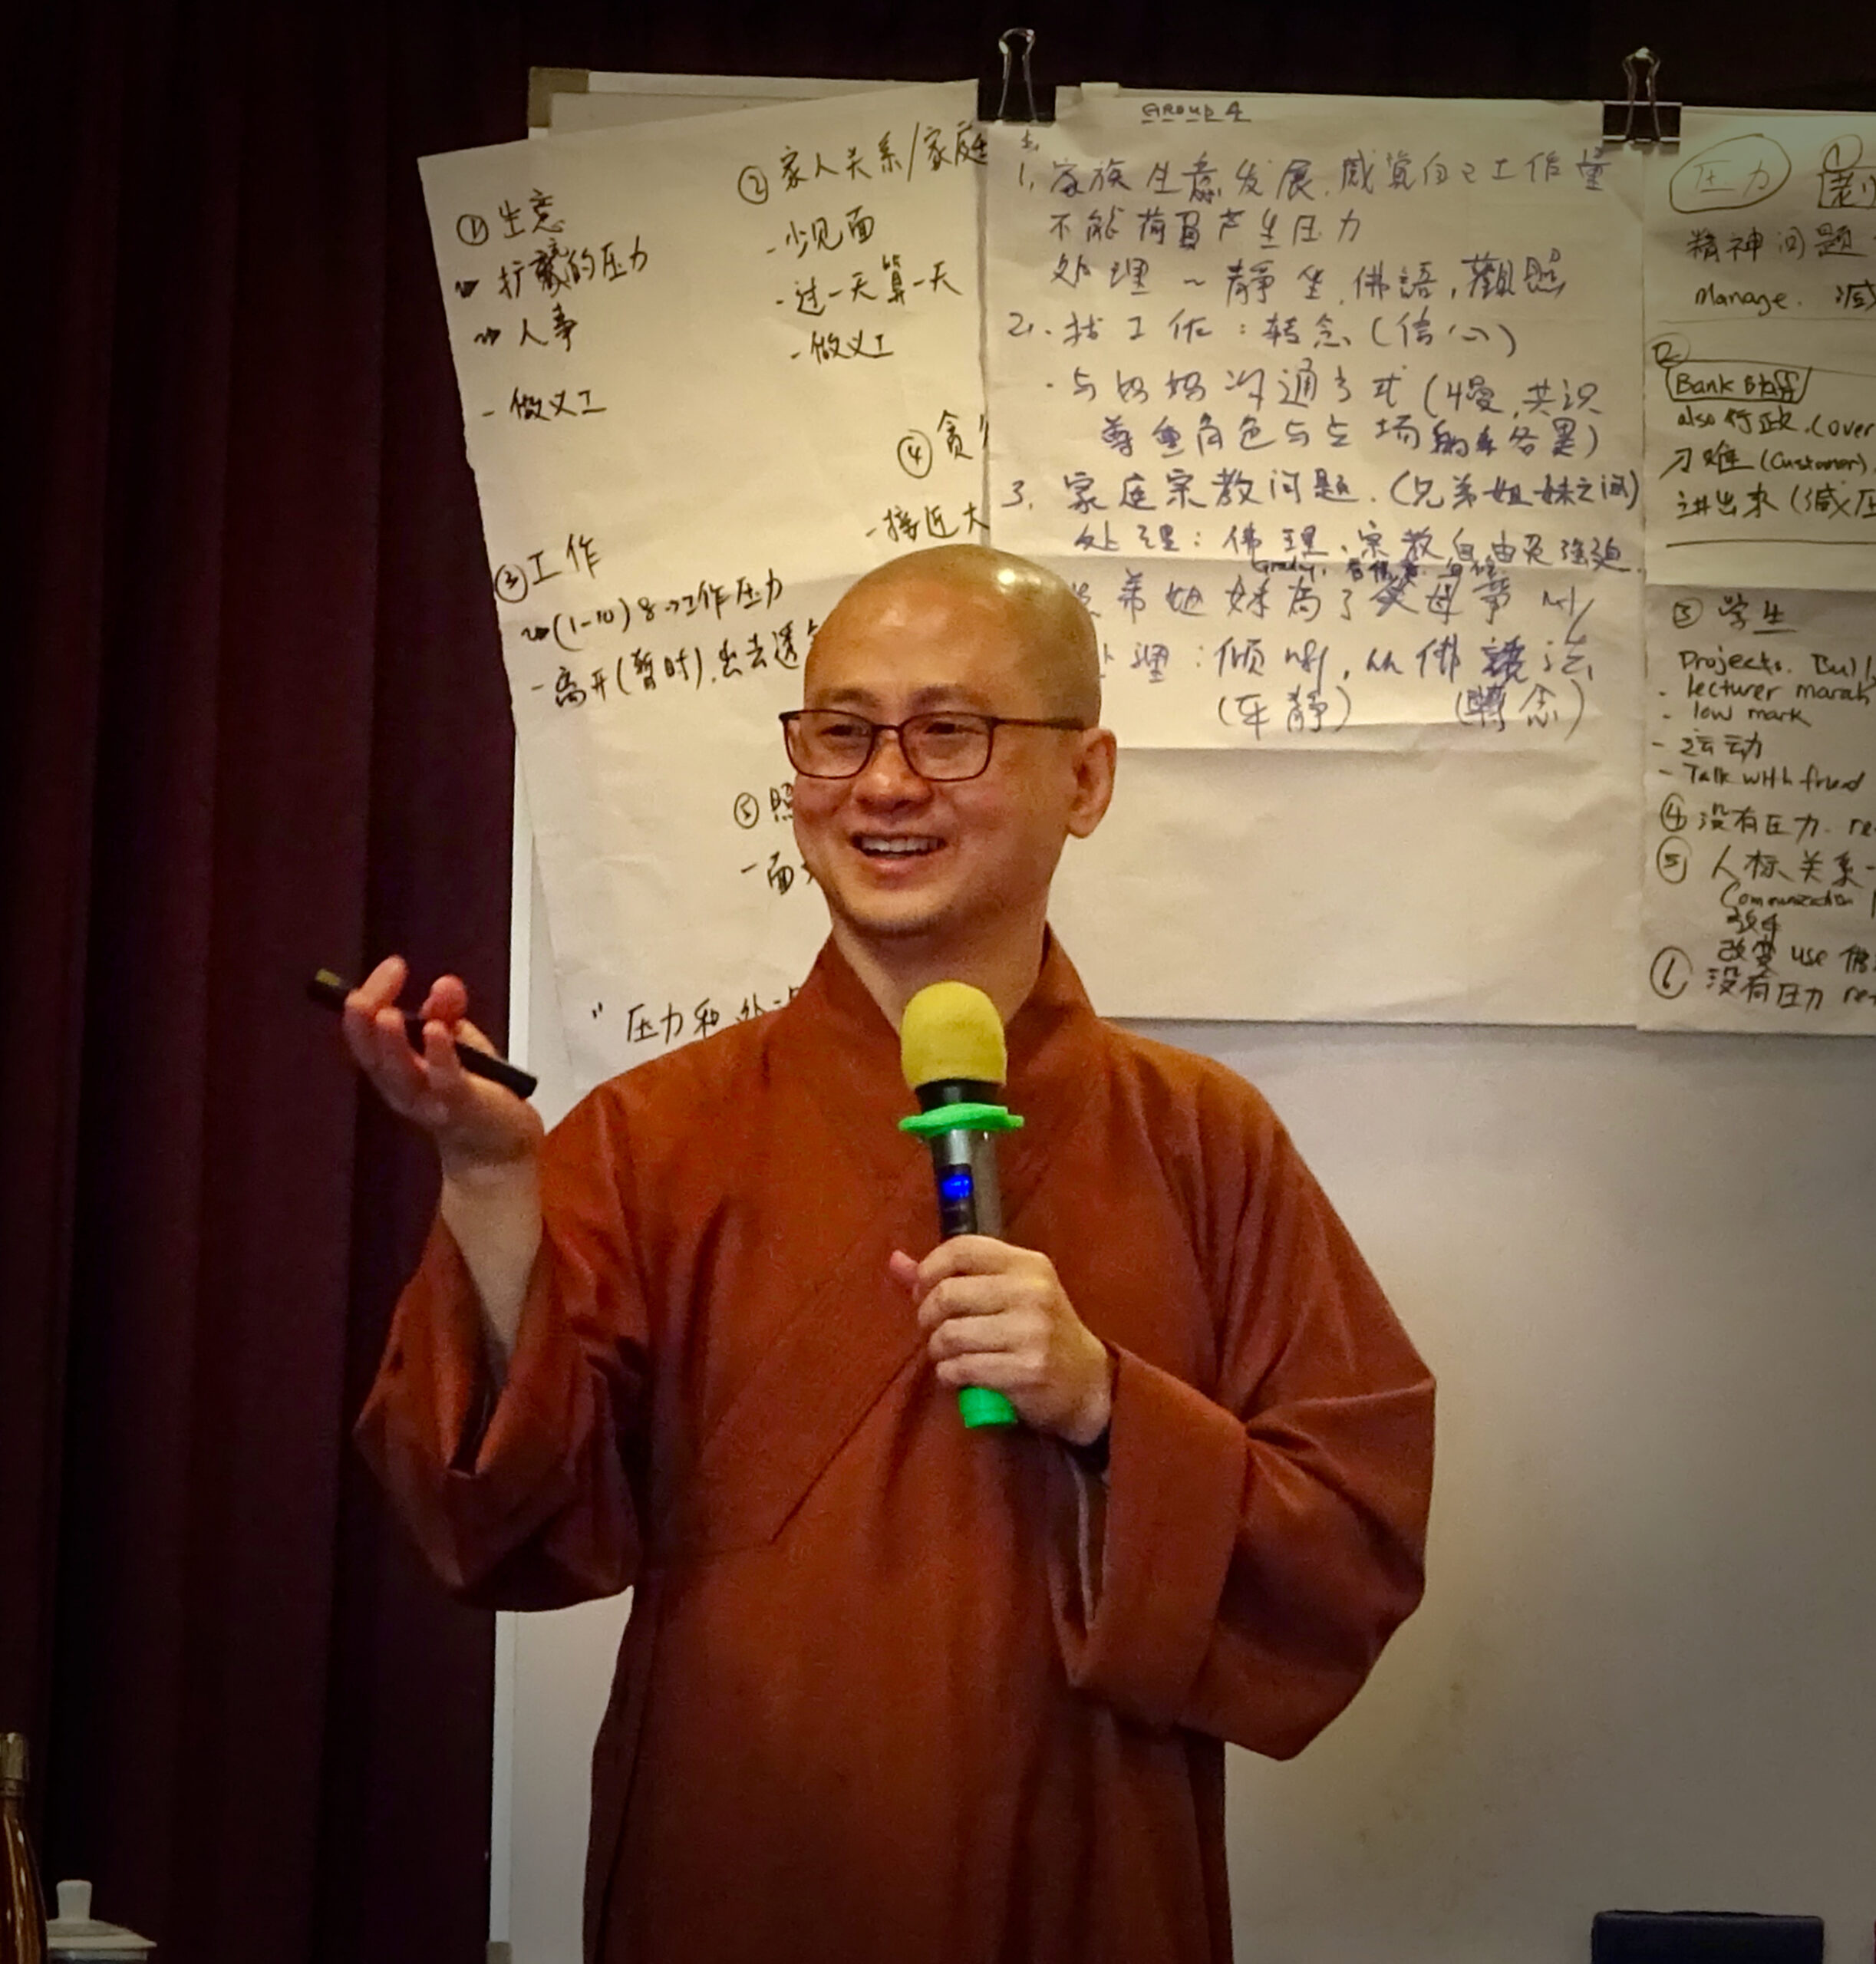 ① 生意
扩展的压力
人事
- 做义工
② 家人关系/家庭
- 少见面
- 过一天算一天
- 做义工
④ 贪
- 接近大
③ 工作
(1-10) 8 → 工作压力
- 离开(暂时).出去透
⑤ 照
- 面
" 压力和处
GROUP 4
1. 家族生意发展.感觉自己工作量
不能荷負产生压力
处理 ~ 靜坐.佛語,觀照
2. 找工作:转念(信心)
· 与妈妈沟通方式(慢,共识
尊重角色与立场的
3. 家庭宗教问题.(兄弟姐妹之间)
处理:佛理、宗教自由
弟姐妹为了父母
理:倾听,从佛
(平静) (轉念)
压力
①
精神问题
manage. 减
②
Bank staff
also 行政.(over
刁难(Customer),
讲出来(减压
③ 学生
Projects.
· lecturer marah
- low mark
- 运动
- Talk with friend
④ 没有压力. re
⑤ 人标关系 -
Communication
改变 use 佛
⑥ 没有压力 re